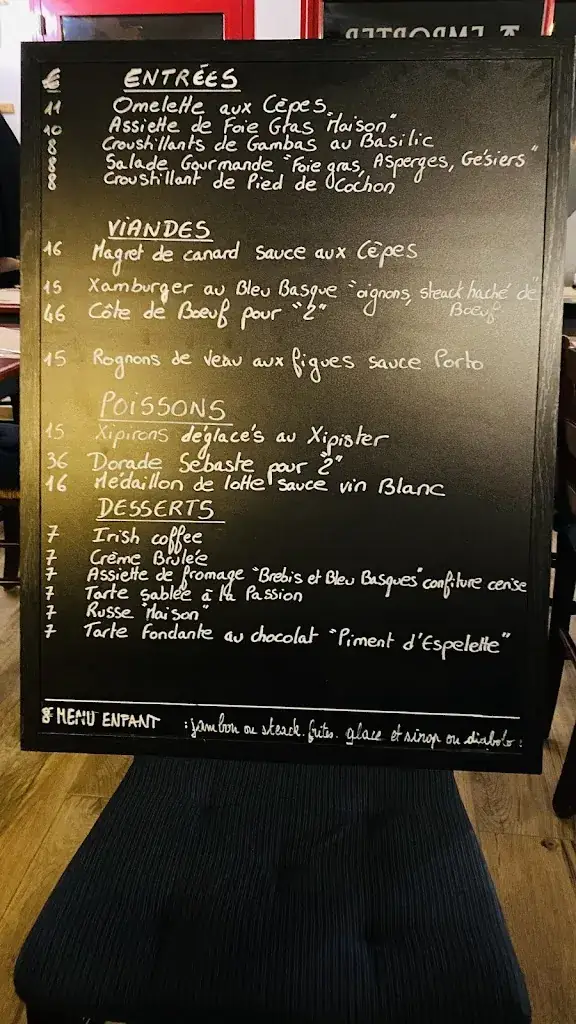 A EMPORTER
€ ENTRÉES
11 Omelette aux Cèpes
10 Assiette de Foie Gras "Maison"
8 Croustillants de Gambas au Basilic
8 Salade Gourmande "Foie gras, Asperges, Gésiers"
8 Croustillant de Pied de Cochon
VIANDES
16 Magret de canard sauce aux Cèpes
15 Xamburger au Bleu Basque "oignons, steack haché de
Boeuf
46 Côte de Boeuf pour "2"
15 Rognons de veau aux figues sauce Porto
POISSONS
15 Xipirons déglacés au Xipister
36 Dorade Sebaste pour "2"
16 Médaillon de lotte sauce vin Blanc
DESSERTS
7 Irish coffee
7 Crème Brulée
7 Assiette de fromage "Brebis et Bleu Basques" confiture cerise
7 Tarte sablée à la Passion
7 Russe "Maison"
7 Tarte Fondante au chocolat "Piment d'Espelette"
8 MENU ENFANT : jambon ou steack. frites. glace et sirop ou diabolo :